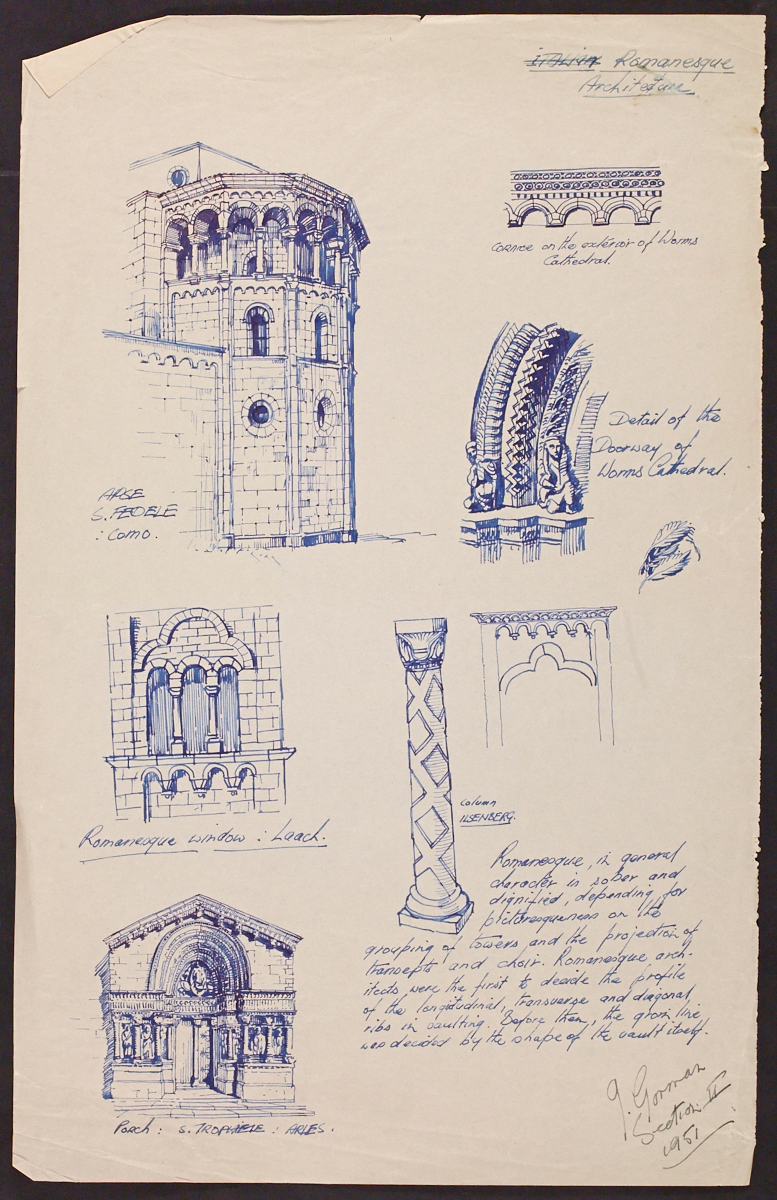 ITALIAN Romanesque
Architecture.
Cornice on the exterior of Worms
Cathedral.
Detail of the
Doorway of
Worms Cathedral.
APSE
S. FEDELE
: Como.
Romanesque window : Laach.
Column
ILSENBERG.
Romanesque, in general
character is sober and
dignified, depending for
picturesqueness on the
grouping of towers and the projection of
transepts and choir. Romanesque arch-
itects were the first to decide the profile
of the longitudinal, transverse and diagonal
ribs in vaulting. Before then, the groin line
was decided by the shape of the vault itself.
Porch : S. TROPHÈME : ARLES.
J. Gorman
Section II
1951